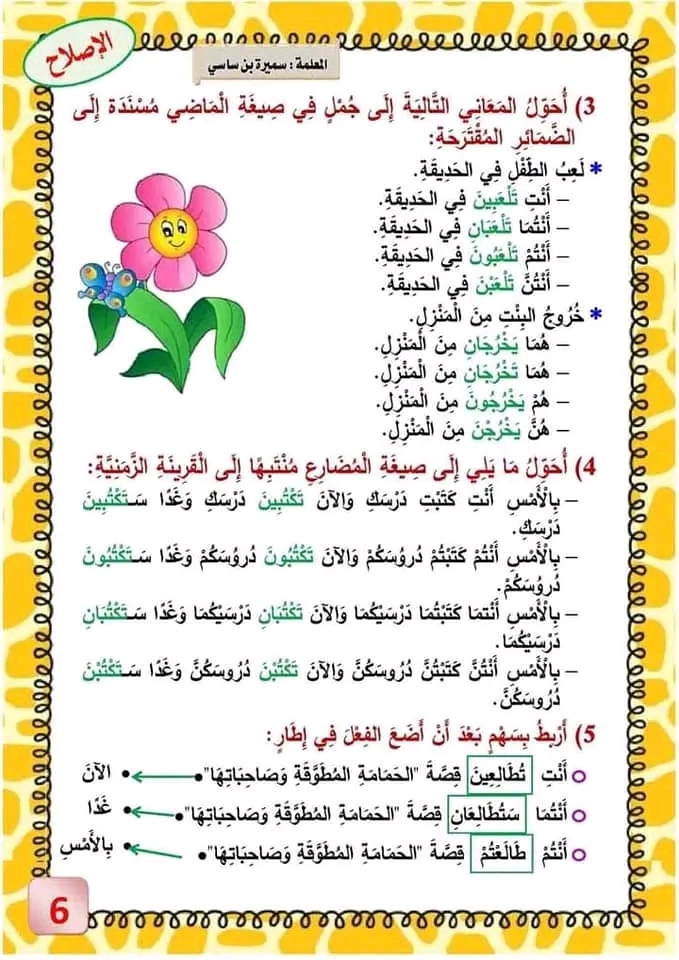 الإصلاح
المعلمة : سميرة بن ساسي
3) أُحَوِّلُ المَعَانِي التَّالِيَةَ إِلَى جُمْلٍ فِي صِيغَةِ الْمَاضِي مُسْنَدَة إِلَى
الضَّمَائِرِ المُقْتَرَحَةِ:
* لَعِبُ الطِّفْلِ فِي الحَدِيقَةِ.
– أَنْتِ تَلْعَبِينَ فِي الحَدِيقَةِ.
– أَنْتُمَا تَلْعَبَانِ فِي الحَدِيقَةِ.
– أَنْتُمْ تَلْعَبُونَ فِي الحَدِيقَةِ.
– أَنْتُنَّ تَلْعَبْنَ فِي الحَدِيقَةِ.
* خُرُوجُ البِنْتِ مِنَ الْمَنْزِلِ.
– هُمَا يَخْرُجَانِ مِنَ الْمَنْزِلِ.
– هُمَا تَخْرُجَانِ مِنَ الْمَنْزِلِ.
– هُمْ يَخْرُجُونَ مِنَ الْمَنْزِلِ.
– هُنَّ يَخْرُجْنَ مِنَ الْمَنْزِلِ.
4) أُحَوِّلُ مَا يَلِي إِلَى صِيغَةِ الْمُضَارِعِ مُنْتَبِهًا إِلَى الْقَرِينَةِ الزَّمَنِيَّةِ:
– بِالْأَمْسِ أَنْتِ كَتَبْتِ دَرْسَكِ وَالآنَ تَكْتُبِينَ دَرْسَكِ وَغَدًا سَـتَكْتُبِينَ
دَرْسَكِ.
– بِالْأَمْسِ أَنْتُمْ كَتَبْتُمْ دُرُوسَكُمْ وَالآنَ تَكْتُبُونَ دُرُوسَكُمْ وَغَدًا سَـتَكْتُبُونَ
دُرُوسَكُمْ.
– بِالْأَمْسِ أَنْتمَا كَتَبْتُمَا دَرْسَيْكُمَا وَالآنَ تَكْتُبَانِ دَرْسَيْكُمَا وَغَدًا سَـتَكْتُبَانِ
دَرْسَيْكُمَا.
– بِالْأَمْسِ أَنْتُنَّ كَتَبْتُنَّ دُرُوسَكُنَّ وَالآنَ تَكْتُبْنَ دُرُوسَكُنَّ وَغَدًا سَـتَكْتُبْنَ
دُرُوسَكُنَّ.
5) أَرْبِطُ بِسَهْمٍ بَعْدَ أَنْ أَضَعَ الفِعْلَ فِي إِطَارٍ:
أَنْتِ تُطَالِعِينَ قِصَّةَ "الحَمَامَةِ المُطَوَّقَةِ وَصَاحِبَاتِهَا"• • الآنَ
أَنْتُمَا سَتُطَالِعَانِ قِصَّةَ "الحَمَامَةِ المُطَوَّقَةِ وَصَاحِبَاتِهَا"• • غَدًا
أَنْتُمْ طَالَعْتُمْ قِصَّةَ "الحَمَامَةِ المُطَوَّقَةِ وَصَاحِبَاتِهَا"• • بِالأَمْسِ
6